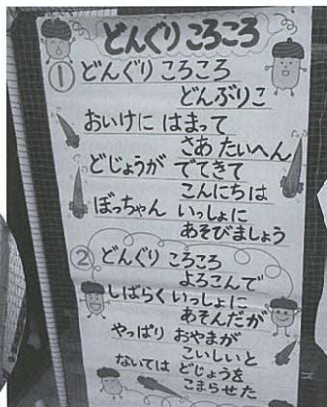 どんぐりころころ
① どんぐり ころころ
どんぶりこ
おいけに はまって
さあ たいへん
どじょうが でてきて
こんにちは
ぼっちゃん いっしょに
あそびましょう
② どんぐり ころころ
よろこんで
しばらく いっしょに
あそんだが
やっぱり おやまが
こいしいと
ないては どじょうを
こまらせた